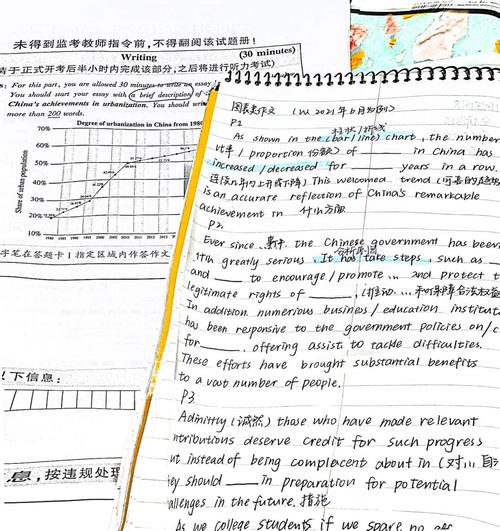 未得到监考教师指令前，不得翻阅该试题册！
Writing
(30 minutes)
请于正式开考后半小时内完成该部分，之后将进行听力考试)
For this part, you are allowed 30 minutes to write an essay
should start your essay with a brief description of
China's achievements in urbanization. You should write
more than 200 words.
Degree of urbanization in China from 1980
Share of urban population
70%
60%
50%
40%
30%
20%
10%
字笔在答题卡 1 指定区域内作答作文
以下信息：
息，按违规处理
图表类作文 (以 2021年6月为例)
P1
柱状/折线
As shown in the (bar/line) chart, the number
比率 / proportion 份额) of ____ in China has
increased/decreased for ____ years in a row.
This welcomed trend
is an accurate reflection of China's remarkable
achievement in 什么方面
P2
Ever since 事件 the Chinese government has been
分析原因
with greatly serious. It has take steps, such as
and ____ to encourage/promote ... and protect t
legitimate rights of ____.
In addition, numerous business / education institut
has been responsive to the government policies on/c
for ____, offering assist to tackle difficulties.
These efforts have brought substantial benefits
to a vast number of people.
P3.
Admittly (诚然) those who have made relevant
ntributions deserve credit for such progress
ut instead of being complacent about in (对...自
hey should ____ in preparation for potential
allenges in the future. 措施
As we college students if we spare no eff